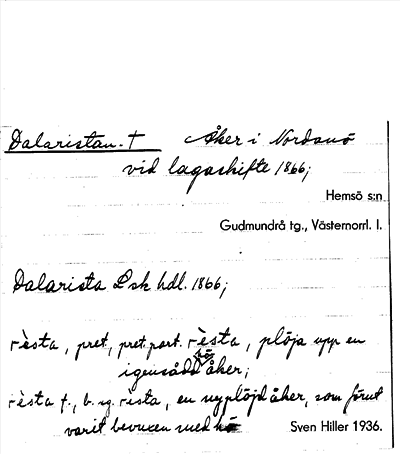 Dalaristan. † Åker i Nordanö
vid lagaskifte 1866;
Hemsö s:n
Gudmundrå tg., Västernorrl. l.
Dalarista Lsk hdl. 1866;
rèsta, pret, pret.part. rèsta, plöja upp en
igensådd åker;
rèsta f., b. sg. rèsta, en nyplöjd åker, som förut
varit bevuxen med hö
Sven Hiller 1936.